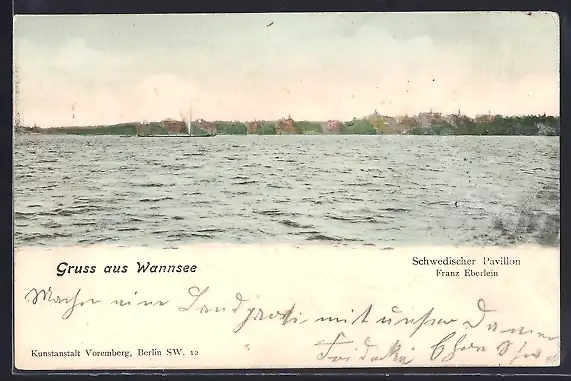 Gruss aus Wannsee
Schwedischer Pavillon
Franz Eberlein
Machen eine Landpartie mit unser Damen
Kunstanstalt Voremberg, Berlin SW. 12